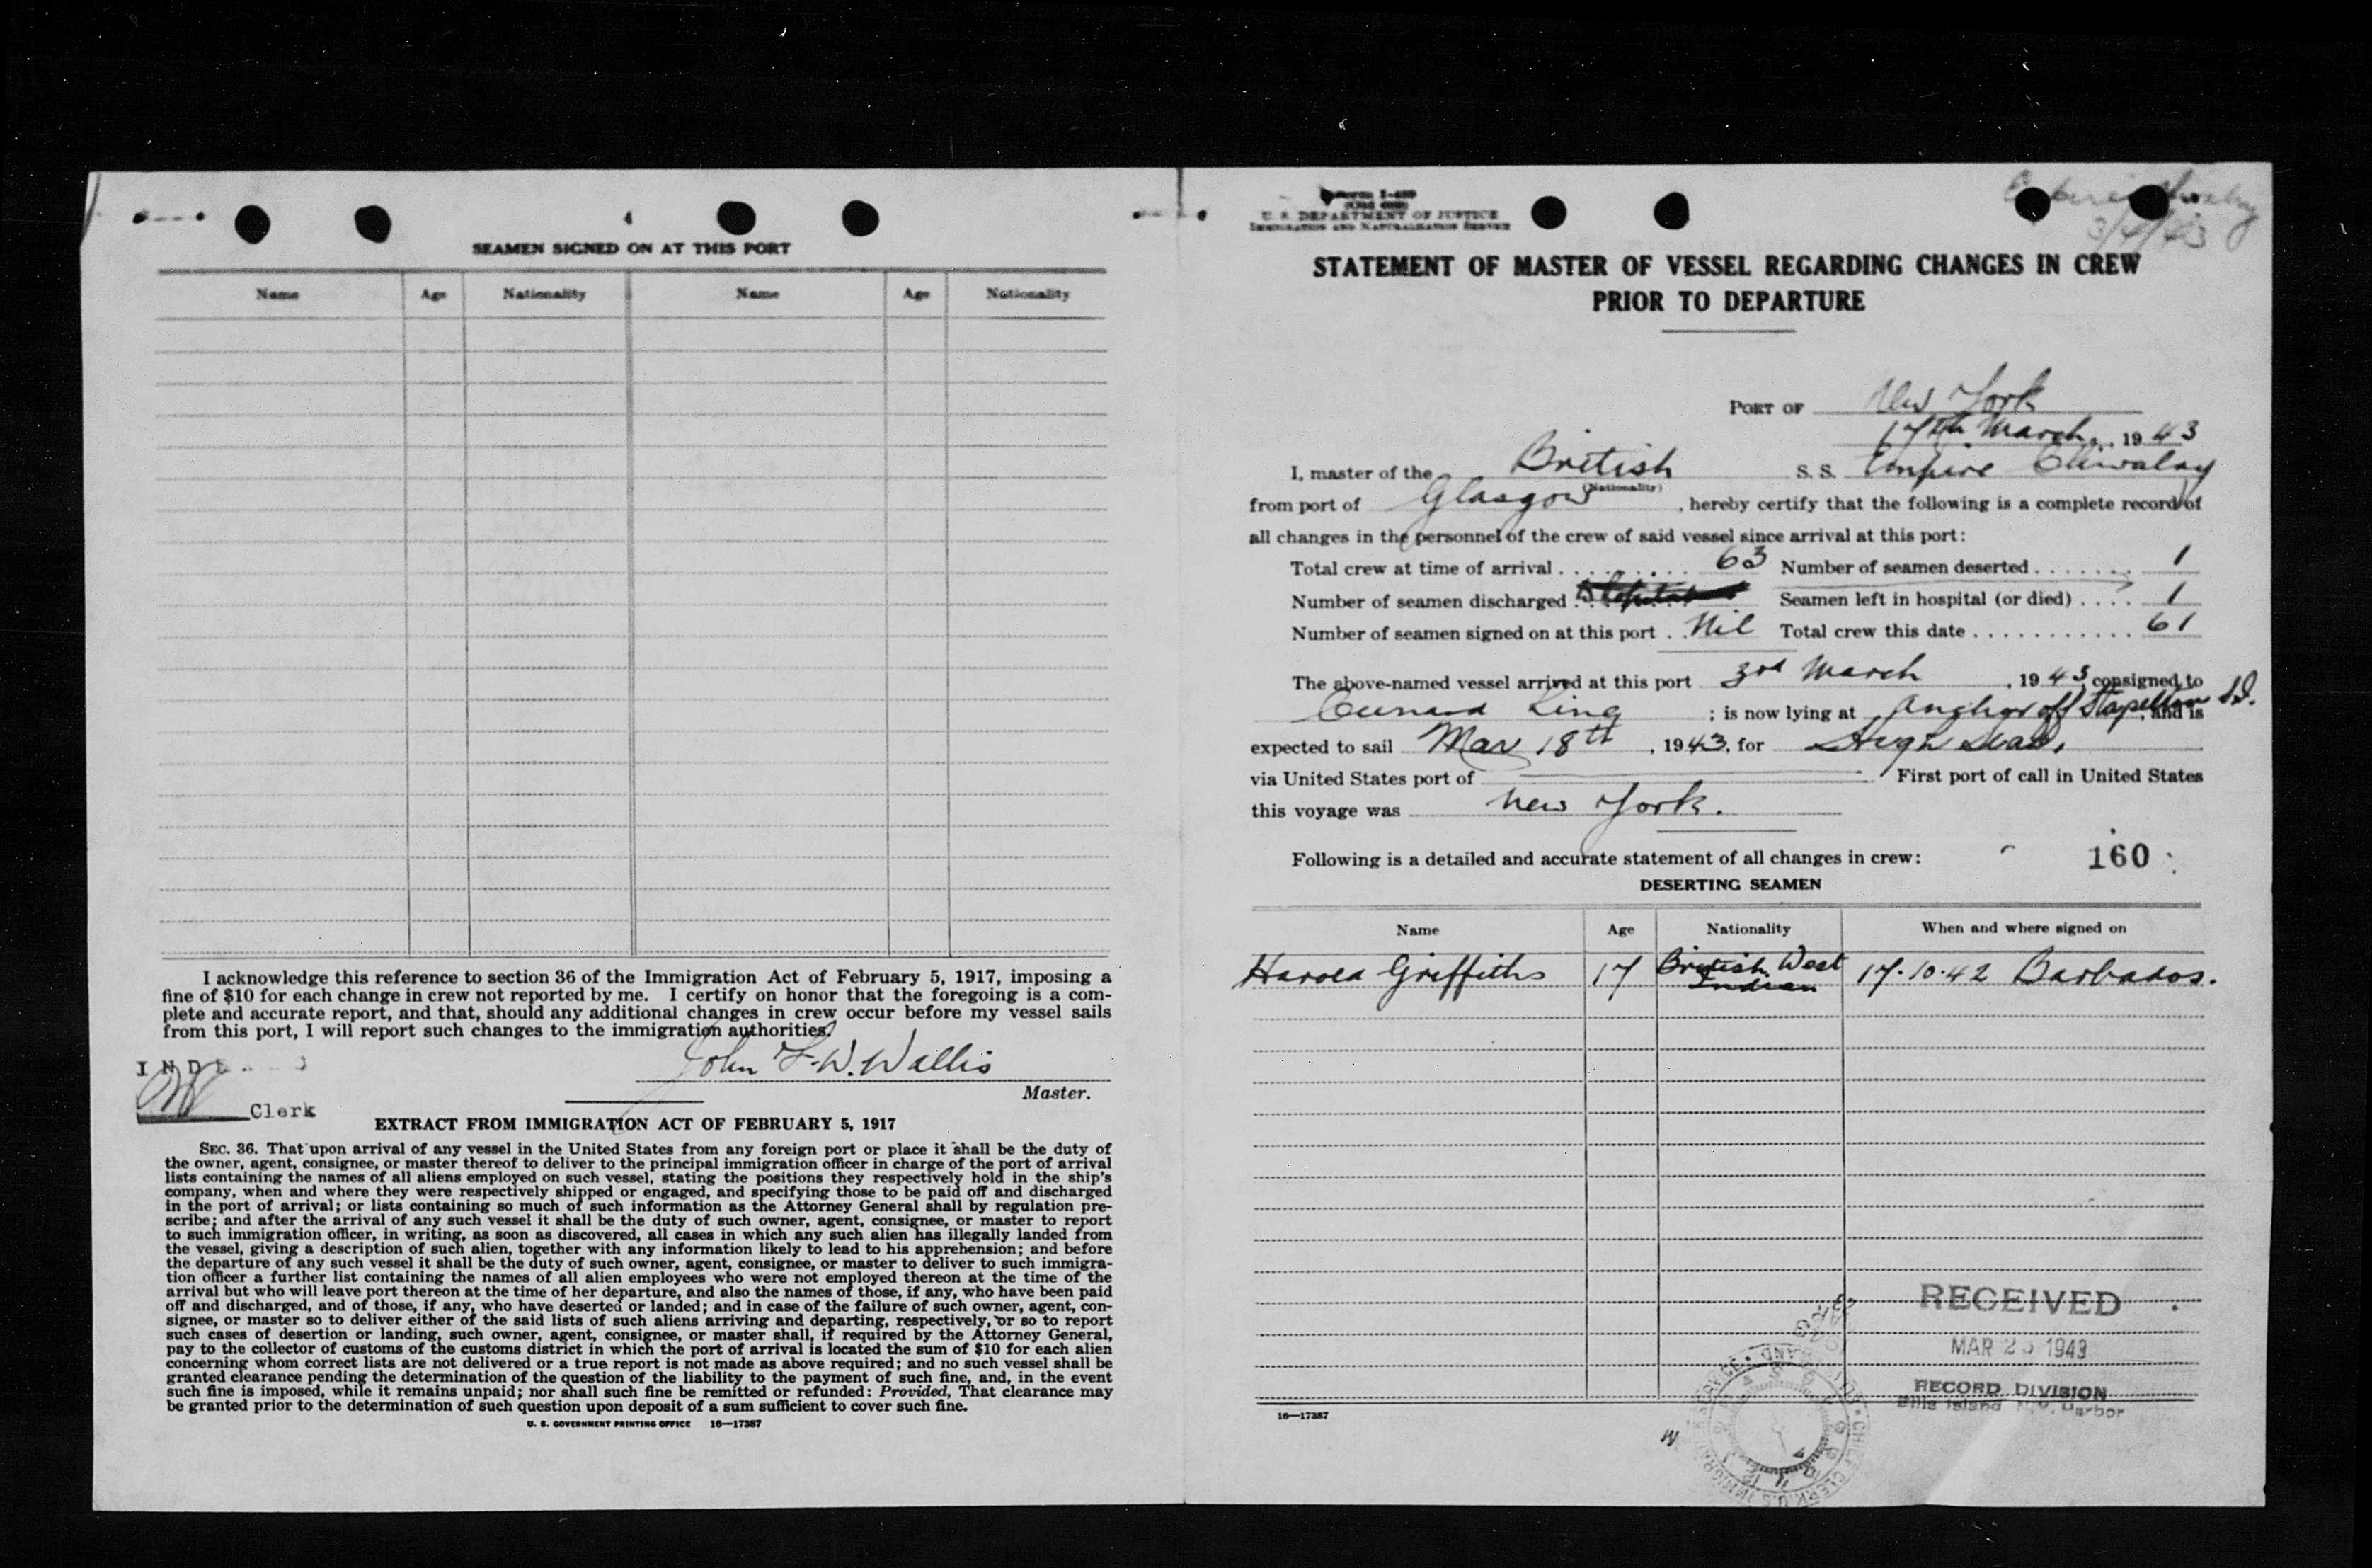 4
SEAMEN SIGNED ON AT THIS PORT
Name Age Nationality Name Age Nationality
I acknowledge this reference to section 36 of the Immigration Act of February 5, 1917, imposing a
fine of $10 for each change in crew not reported by me. I certify on honor that the foregoing is a com-
plete and accurate report, and that, should any additional changes in crew occur before my vessel sails
from this port, I will report such changes to the immigration authorities.
John F. W. Wallis
Master.
Clerk
EXTRACT FROM IMMIGRATION ACT OF FEBRUARY 5, 1917
SEC. 36. That upon arrival of any vessel in the United States from any foreign port or place it shall be the duty of
the owner, agent, consignee, or master thereof to deliver to the principal immigration officer in charge of the port of arrival
lists containing the names of all aliens employed on such vessel, stating the positions they respectively hold in the ship's
company, when and where they were respectively shipped or engaged, and specifying those to be paid off and discharged
in the port of arrival; or lists containing so much of such information as the Attorney General shall by regulation pre-
scribe; and after the arrival of any such vessel it shall be the duty of such owner, agent, consignee, or master to report
to such immigration officer, in writing, as soon as discovered, all cases in which any such alien has illegally landed from
the vessel, giving a description of such alien, together with any information likely to lead to his apprehension; and before
the departure of any such vessel it shall be the duty of such owner, agent, consignee, or master to deliver to such immigra-
tion officer a further list containing the names of all alien employees who were not employed thereon at the time of the
arrival but who will leave port thereon at the time of her departure, and also the names of those, if any, who have been paid
off and discharged, and of those, if any, who have deserted or landed; and in case of the failure of such owner, agent, con-
signee, or master so to deliver either of the said lists of such aliens arriving and departing, respectively, or so to report
such cases of desertion or landing, such owner, agent, consignee, or master shall, if required by the Attorney General,
pay to the collector of customs of the customs district in which the port of arrival is located the sum of $10 for each alien
concerning whom correct lists are not delivered or a true report is not made as above required; and no such vessel shall be
granted clearance pending the determination of the question of the liability to the payment of such fine, and, in the event
such fine is imposed, while it remains unpaid; nor shall such fine be remitted or refunded: Provided, That clearance may
be granted prior to the determination of such question upon deposit of a sum sufficient to cover such fine.
U. S. GOVERNMENT PRINTING OFFICE 16—17387
U. S. DEPARTMENT OF JUSTICE
IMMIGRATION AND NATURALIZATION SERVICE
STATEMENT OF MASTER OF VESSEL REGARDING CHANGES IN CREW
PRIOR TO DEPARTURE
PORT OF New York
17th March, 1943
I, master of the British S. S. Empire Chivalry
(Nationality)
from port of Glasgow, hereby certify that the following is a complete record of
all changes in the personnel of the crew of said vessel since arrival at this port:
Total crew at time of arrival 63 Number of seamen deserted 1
Number of seamen discharged Seamen left in hospital (or died) 1
Number of seamen signed on at this port Nil Total crew this date 61
The above-named vessel arrived at this port 3rd March, 1943 consigned to
Cunard Line; is now lying at Anchor off Stapelton S.I., and is
expected to sail Mar 18th, 1943, for High Seas.
via United States port of First port of call in United States
this voyage was New York.
Following is a detailed and accurate statement of all changes in crew: 160
DESERTING SEAMEN
Name Age Nationality When and where signed on
Harold Griffiths 17 British West Indian 17.10.42 Barbados.
RECEIVED
MAR 1943
RECORD DIVISION
Ellis Island N.Y. Harbor
16—17387